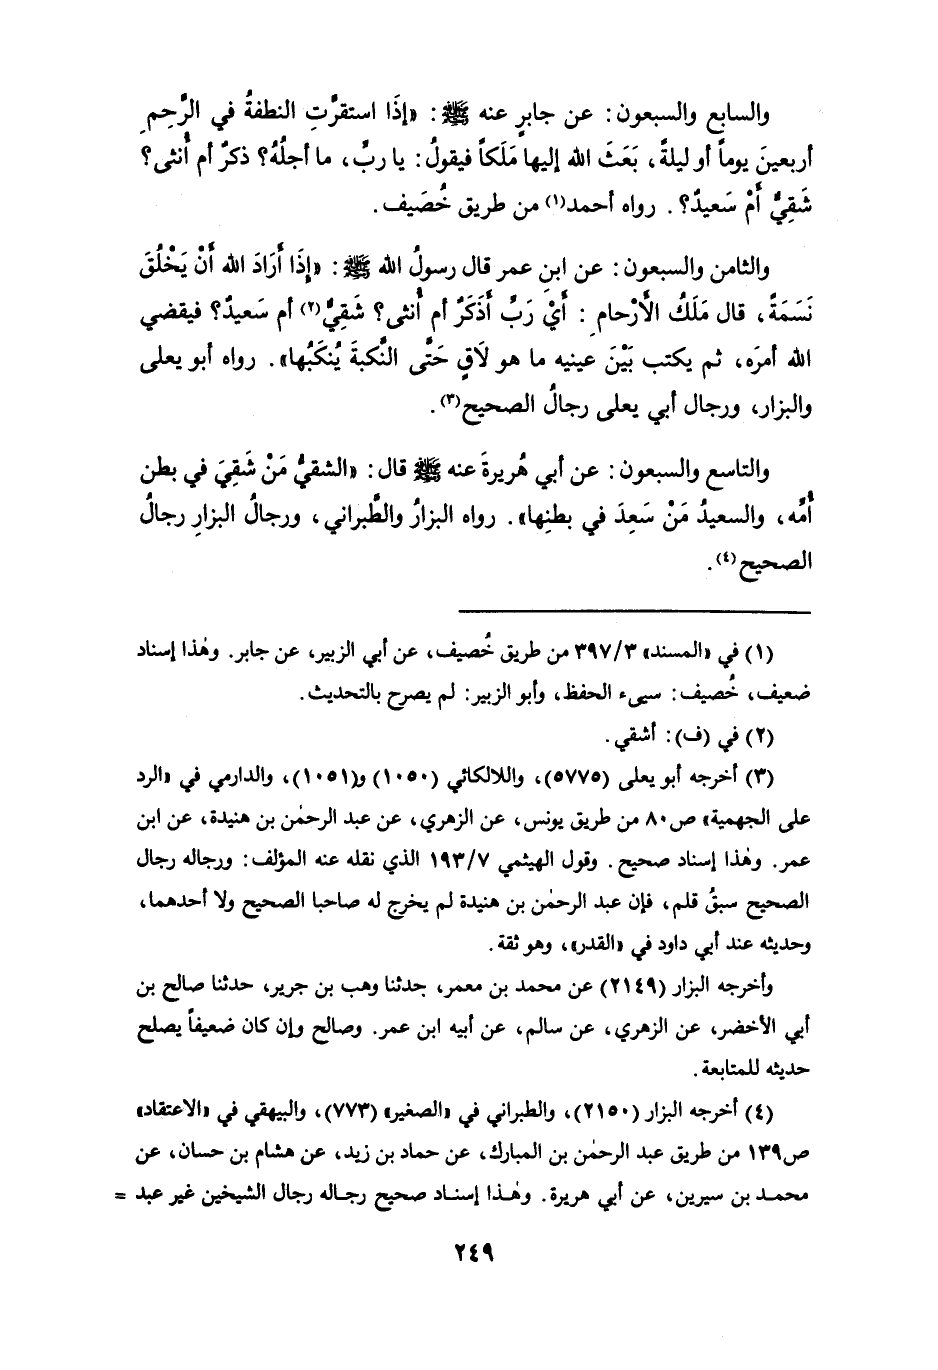 والسابع والسبعون: عن جابرٍ عنه ﷺ: «إذَا استقرَّتِ النطفةُ في الرَّحِمِ
أربعينَ يوماً أو ليلةً، بَعَثَ الله إليها مَلَكاً فيقولُ: يا ربِّ، ما أجلُهُ؟ ذكرٌ أم أُنثى؟
شَقِيٌّ أمْ سَعيدٌ؟. رواه أحمد(١) من طريق خُصَيف.
والثامن والسبعون: عن ابنِ عمر قال رسولُ الله ﷺ: «إِذَا أَرَادَ الله أَنْ يَخْلُقَ
نَسَمَةً، قال مَلَكُ الأَرْحامِ: أَيْ رَبِّ أَذَكَرٌ أم أُنثى؟ شَقِيٌّ(٢) أم سَعيدٌ؟ فيقضي
الله أمرَه، ثم يكتب بَيْنَ عينيه ما هو لَاقٍ حَتَّى النَّكبةَ يُنكَبُها». رواه أبو يعلى
والبزار، ورجال أبي يعلى رجالُ الصحيح(٣).
والتاسع والسبعون: عن أبي هُريرةَ عنه ﷺ قال: «الشقيُّ مَنْ شَقِيَ في بطن
أُمِّه، والسعيدُ مَنْ سَعِدَ في بطنِها». رواه البزارُ والطَّبراني، ورجالُ البزارِ رجالُ
الصحيح(٤).
(١) في «المسند» ٣٩٧/٣ من طريق خُصيف، عن أبي الزبير، عن جابر. وهٰذا إسناد
ضعيف، خُصيف: سيىء الحفظ، وأبو الزبير: لم يصرح بالتحديث.
(٢) في (ف): أشقي.
(٣) أخرجه أبو يعلى (٥٧٧٥)، واللالكائي (١٠٥٠) و(١٠٥١)، والدارمي في «الرد
على الجهمية» ص٨٠ من طريق يونس، عن الزهري، عن عبد الرحمٰن بن هنيدة، عن ابن
عمر. وهٰذا إسناد صحيح. وقول الهيثمي ١٩٣/٧ الذي نقله عنه المؤلف: ورجاله رجال
الصحيح سبقُ قلم، فإن عبد الرحمٰن بن هنيدة لم يخرج له صاحبا الصحيح ولا أحدهما،
وحديثه عند أبي داود في «القدر»، وهو ثقة.
وأخرجه البزار (٢١٤٩) عن محمد بن معمر، حدثنا وهب بن جرير، حدثنا صالح بن
أبي الأخضر، عن الزهري، عن سالم، عن أبيه ابن عمر. وصالح وإن كان ضعيفاً يصلح
حديثه للمتابعة.
(٤) أخرجه البزار (٢١٥٠)، والطبراني في «الصغير» (٧٧٣)، والبيهقي في «الاعتقاد»
ص١٣٩ من طريق عبد الرحمٰن بن المبارك، عن حماد بن زيد، عن هشام بن حسان، عن
محمد بن سيرين، عن أبي هريرة. وهٰذا إسناد صحيح رجاله رجال الشيخين غير عبد =
٢٤٩